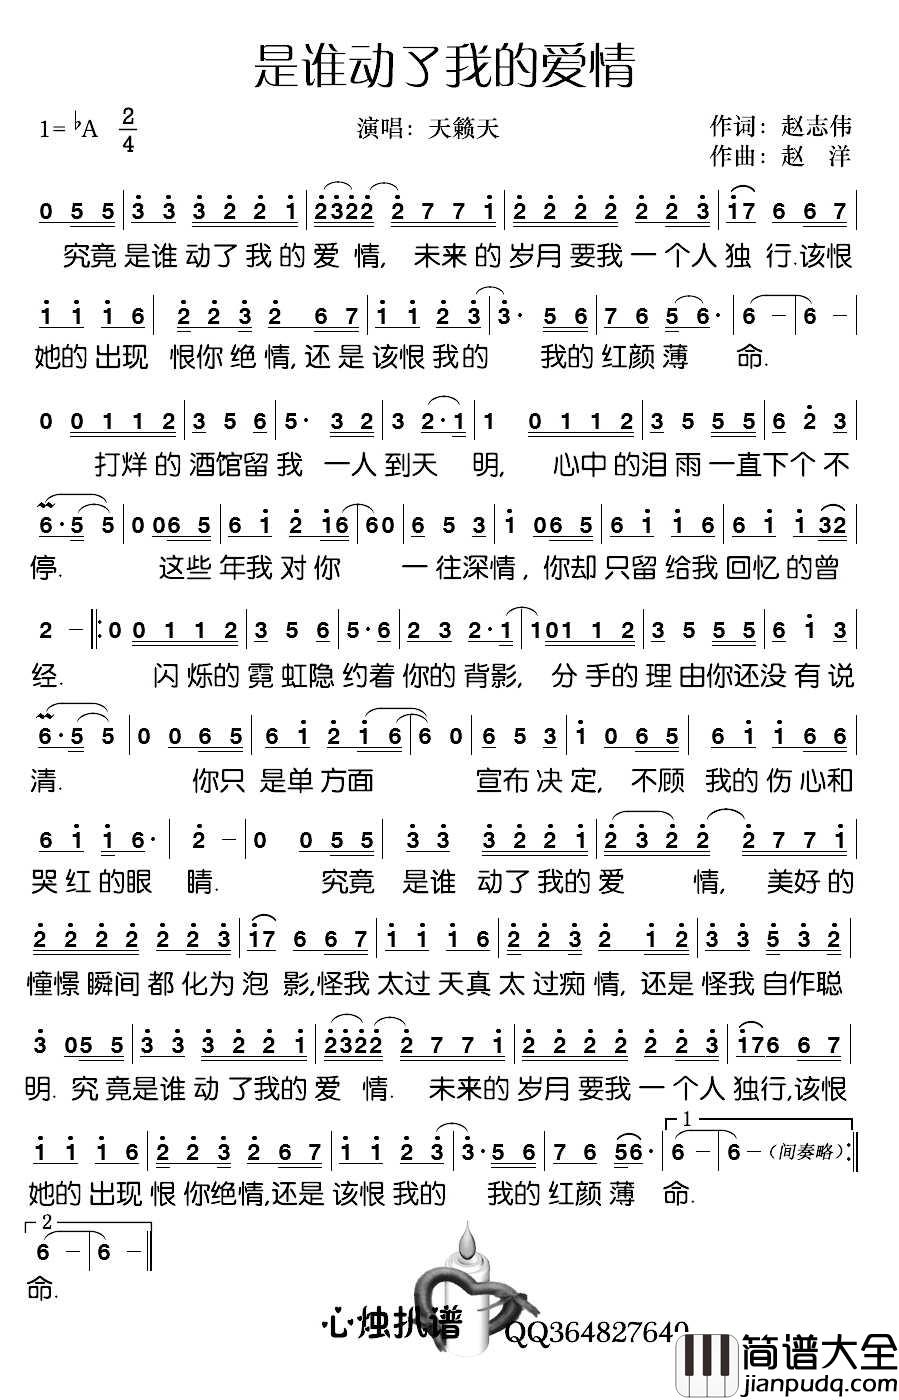 是谁动了我的爱情
1= ♭A 2/4
演唱：天籁天
作词：赵志伟
作曲：赵 洋
0 5 5 | 3 3 3 2 2 1 | 2 3 2 2 2 7 7 1 | 2 2 2 2 2 2 3 | 1 7 6 6 7
究竟是谁动了我的爱 情, 未来的岁月要我一个人独 行.该恨
1 1 1 6 2 2 3 2 6 7 | 1 1 2 3 | 3· 5 6 | 7 6 5 6· | 6 － | 6 －
她的出现 恨你绝情,还是该恨我的 我的红颜薄 命.
0 0 1 1 2 | 3 5 6 | 5· 3 2 | 3 2·1 | 1 0 1 1 2 | 3 5 5 5 | 6 2 3
打烊的酒馆留我 一人到天 明, 心中的泪雨一直下个不
6·5 5 | 0 0 6 5 | 6 1 2 1 6 | 6 0 | 6 5 3 | 1 0 6 5 | 6 1 1 6 | 6 1 1 3 2
停. 这些年我对你 一往深情, 你却只留给我回忆的曾
2 － ‖: 0 0 1 1 2 | 3 5 6 | 5·6 | 2 3 2·1 | 1 0 1 1 2 | 3 5 5 5 | 6 1 3
经. 闪烁的霓虹隐约着你的背影, 分手的理由你还没有说
6·5 5 | 0 0 6 5 | 6 1 2 1 6 | 6 0 | 6 5 3 | 1 0 6 5 | 6 1 1 6 6
清. 你只是单方面 宣布决定, 不顾 我的伤心和
6 1 1 6· | 2 － | 0 0 5 5 | 3 3 3 2 2 1 | 2 3 2 2 2 7 7 1
哭红的眼 睛. 究竟 是谁 动了我的爱 情, 美好的
2 2 2 2 2 2 3 | 1 7 6 6 7 | 1 1 1 6 | 2 2 3 2 1 2 | 3 3 5 3 2
憧憬瞬间都化为泡 影,怪我太过天真太过痴情, 还是怪我自作聪
3 0 5 5 | 3 3 3 2 2 1 | 2 3 2 2 2 7 7 1 | 2 2 2 2 2 2 3 | 1 7 6 6 7
明. 究竟是谁动了我的爱 情. 未来的岁月要我一个人独行,该恨
1 1 1 6 | 2 2 3 2 6 7 | 1 1 2 3 | 3· 5 6 | 7 6 5 6· | 1 6 － | 6 － （间奏略） :‖
她的出现恨你绝情,还是该恨我的 我的红颜薄 命.
2 6 － | 6 － ‖
命.
心烛扒谱
QQ364827649
简谱大全
jianpudq.com